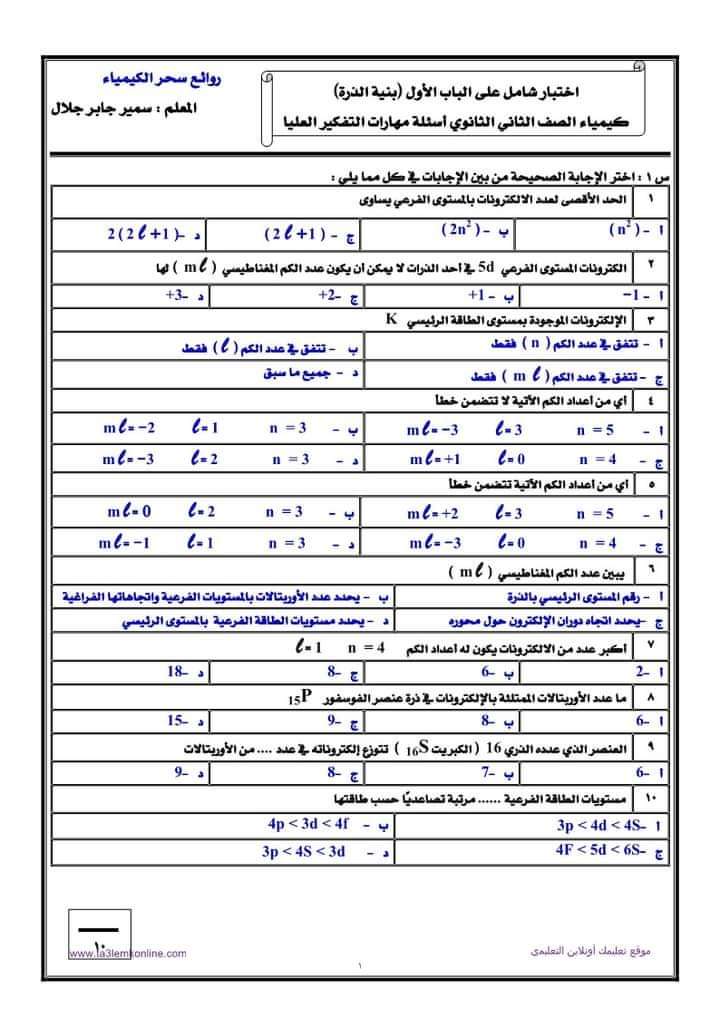 روائع سحر الكيمياء
المعلم : سمير جابر جلال
اختبار شامل على الباب الأول (بنية الذرة)
كيمياء الصف الثاني الثانوي أسئلة مهارات التفكير العليا
س ١ : اختر الإجابة الصحيحة من بين الإجابات في كل مما يلي :
١ الحد الأقصى لعدد الالكترونات بالمستوى الفرعي يساوى
أ – ( n² ) ب – ( 2n² ) ج – ( 2 ℓ +1 ) د – 2 ( 2 ℓ +1 )
٢ الكترونات المستوى الفرعي 5d في أحد الذرات لا يمكن أن يكون عدد الكم المغناطيسي ( mℓ ) لها
أ – 1− ب – 1+ ج – 2+ د – 3+
٣ الإلكترونات الموجودة بمستوى الطاقة الرئيسي K
أ – تتفق في عدد الكم ( n ) فقط ب – تتفق في عدد الكم ( ℓ ) فقط
ج – تتفق في عدد الكم ( m ℓ ) فقط د – جميع ما سبق
٤ أي من أعداد الكم الأتية لا تتضمن خطأ
أ – n = 5 ℓ= 3 mℓ= −3 ب – n = 3 ℓ= 1 mℓ= −2
ج – n = 4 ℓ= 0 mℓ= +1 د – n = 3 ℓ= 2 mℓ= −3
٥ أي من أعداد الكم الأتية تتضمن خطأ
أ – n = 5 ℓ= 3 mℓ= +2 ب – n = 3 ℓ= 2 mℓ= 0
ج – n = 4 ℓ= 0 mℓ= −3 د – n = 3 ℓ= 1 mℓ= −1
٦ يبين عدد الكم المغناطيسي ( mℓ )
أ – رقم المستوى الرئيسي بالذرة ب – يحدد عدد الأوربيتالات بالمستويات الفرعية واتجاهاتها الفراغية
ج –يحدد اتجاه دوران الإلكترون حول محوره د – يحدد مستويات الطاقة الفرعية بالمستوى الرئيسي
٧ أكبر عدد من الالكترونات يكون له أعداد الكم n = 4 ℓ= 1
أ –2 ب –6 ج –8 د –18
٨ ما عدد الأوربيتالات الممتلئة بالإلكترونات في ذرة عنصر الفوسفور ₁₅P
أ –6 ب –8 ج –9 د –15
٩ العنصر الذي عدده الذري 16 ( الكبريت ₁₆S ) تتوزع إلكتروناته في عدد .... من الأوربيتالات
أ –6 ب –7 ج –8 د –9
١٠ مستويات الطاقة الفرعية ...... مرتبة تصاعديًا حسب طاقتها
أ –3p < 4d < 4S ب – 4p < 3d < 4f
ج –4F < 5d < 6S د – 3p < 4S < 3d
١٠
www.ta3lemkonline.com
موقع تعليمك أونلاين التعليمى
١